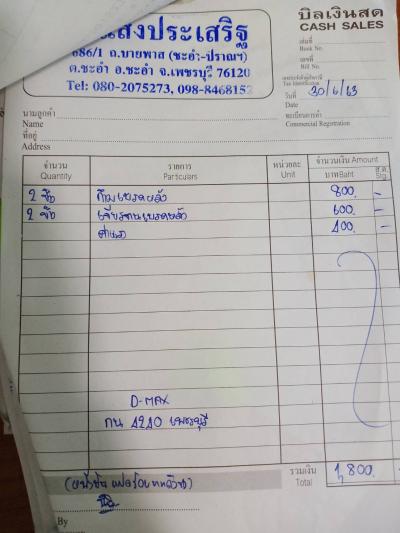 แสงประเสริฐ
686/1 ถ.บายพาส (ชะอำ-ปราณฯ)
ต.ชะอำ อ.ชะอำ จ.เพชรบุรี 76120
Tel: 080-2075273, 098-8468152
บิลเงินสด
CASH SALES
เล่มที่
Book No.
เลขที่
Bill No.
เลขประจำตัวผู้เสียภาษี
Tax Identification
วันที่ 30/6/63
Date
ทะเบียนการค้า
Commercial Registration
นามลูกค้า
Name
ที่อยู่
Address
จำนวน รายการ หน่วยละ จำนวนเงิน Amount
Quantity Particulars Unit บาท Baht ส.ต. Stg.
2 ข้าง ก้ามเบรคหลัง 800. -
2 ข้าง เจียรจานเบรคหลัง 600. -
ค่าแรง 400. -
D-MAX
กน 4240 เพชรบุรี
รวมเงิน
Total 1,800. -
By